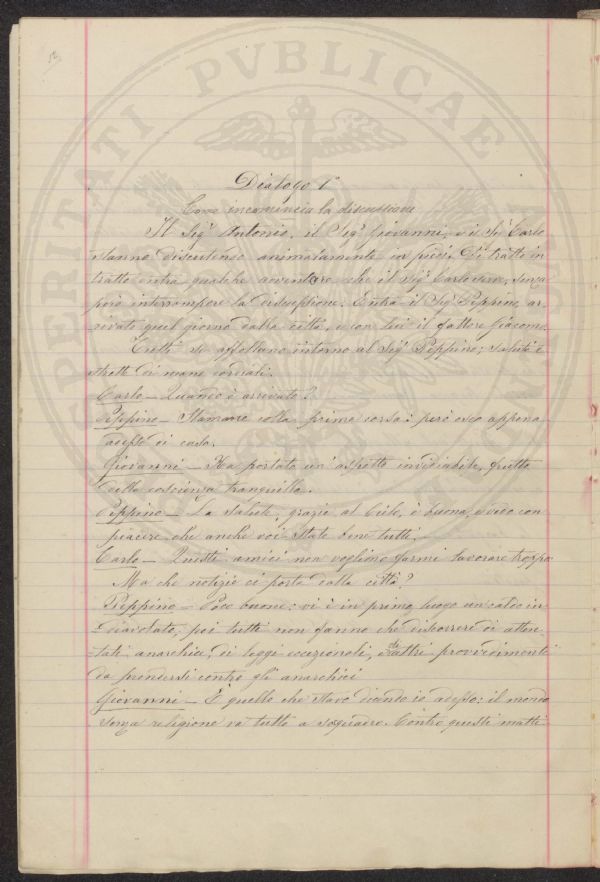 PROSPERITATI PVBLICAE
Dialogo 1º
Come incomincia la discussione
Il Sigr Antonio, il Sigr Giovanni, e il Sr Carlo
stanno discutendo animatamente in piedi. Di tratto in
tratto entra qualche avventore che il Sigr Carlo serve, senza
però interrompere la discussione. Entra il Sigr Peppino, ar-
rivato quel giorno dalla città, e con lui il fattore Giacomo.
Tutti si affollano intorno al Sigr Peppino; saluti e
strette di mani cordiali.
Carlo — Quando è arrivato?
Peppino — Stamane colla prima corsa: però esco appena
adesso di casa.
Giovanni — Ha portato un'aspetto invidiabile, frutto
della coscienza tranquilla.
Peppino — La salute, grazie al Cielo, è buona, e vedo con
piacere che anche voi state bene tutti. —
Carlo — Questi amici non vogliono farmi lavorare troppo.
Ma che notizie ci porta dalla città?
Peppino — Poco buone: vi è in primo luogo un caldo in-
diavolato, poi tutti non fanno che discorrere di atten-
tati anarchici, di leggi eccezionali, e di altri provvedimenti
da prendersi contro gli anarchici
Giovanni — È quello che stavo dicendo io adesso: il mondo
senza religione va tutto a soqquadro. Contro questi matti